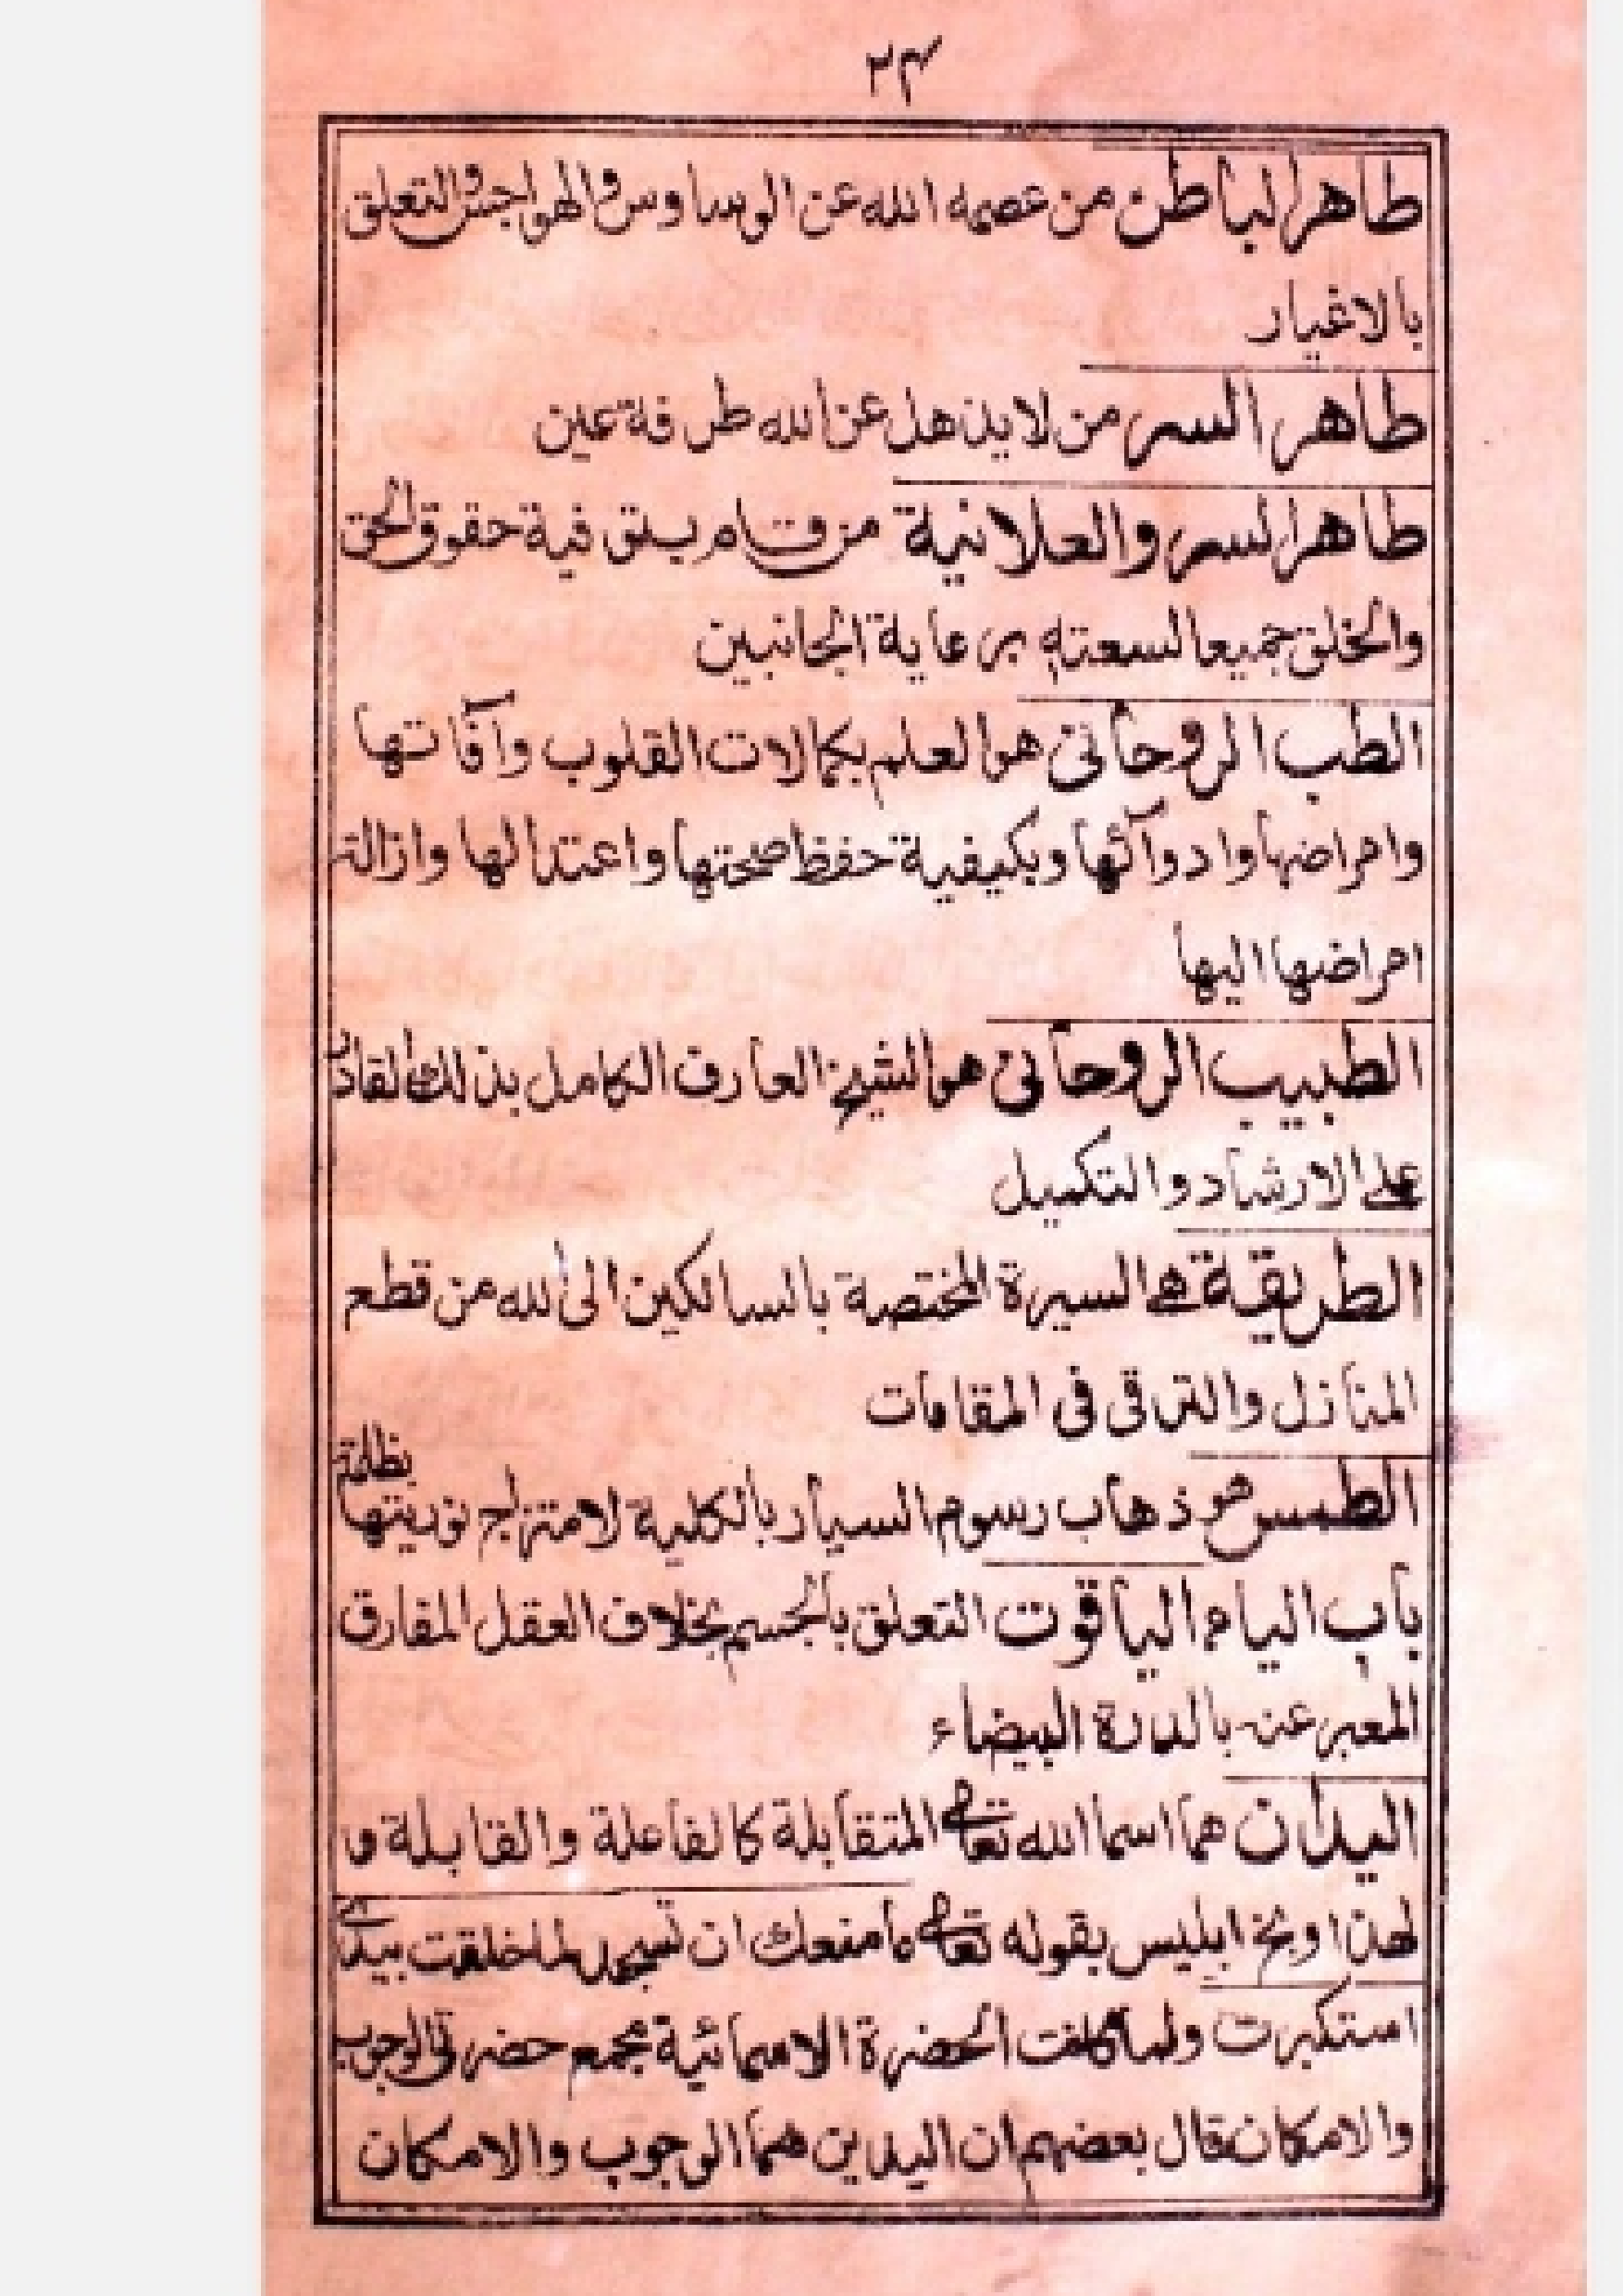 ۲۴
طاهر الباطن من عصمه الله عن الوساوس والهواجس والتعلق
بالاغيار
طاهر السر من لا يذهل عن الله طرفة عين
طاهر السر والعلانية من قام بتوفية حقوق الحق
والخلق جميعا لسعته برعاية الجانبين
الطب الروحانى هو العلم بكمالات القلوب وآفاتها
وامراضها وادوآئها وبكيفية حفظ صحتها واعتدالها وازالة
امراضها اليها
الطبيب الروحانى هو الشيخ العارف الكامل بذلك القادر
على الارشاد والتكميل
الطريقة هى السيرة المختصة بالسالكين الى الله من قطع
المنازل والترقى فى المقامات
الطمس هو ذهاب رسوم السيار بالكلية لامتزاج نوريتها
بظلمة
باب الياء الياقوت التعلق بالجسم بخلاف العقل المفارق
المعبر عنه بالدرة البيضاء
اليدان هما اسما الله تعالى المتقابلة كالفاعلة والقابلة و
لهذا وبخ ابليس بقوله تعالى ما منعك ان تسجد لما خلقت بيدى
استكبرت ولما كانت الحضرة الاسمائية مجمع حضرتى الوجوب
والامكان قال بعضهم ان اليدين هما الوجوب والامكان